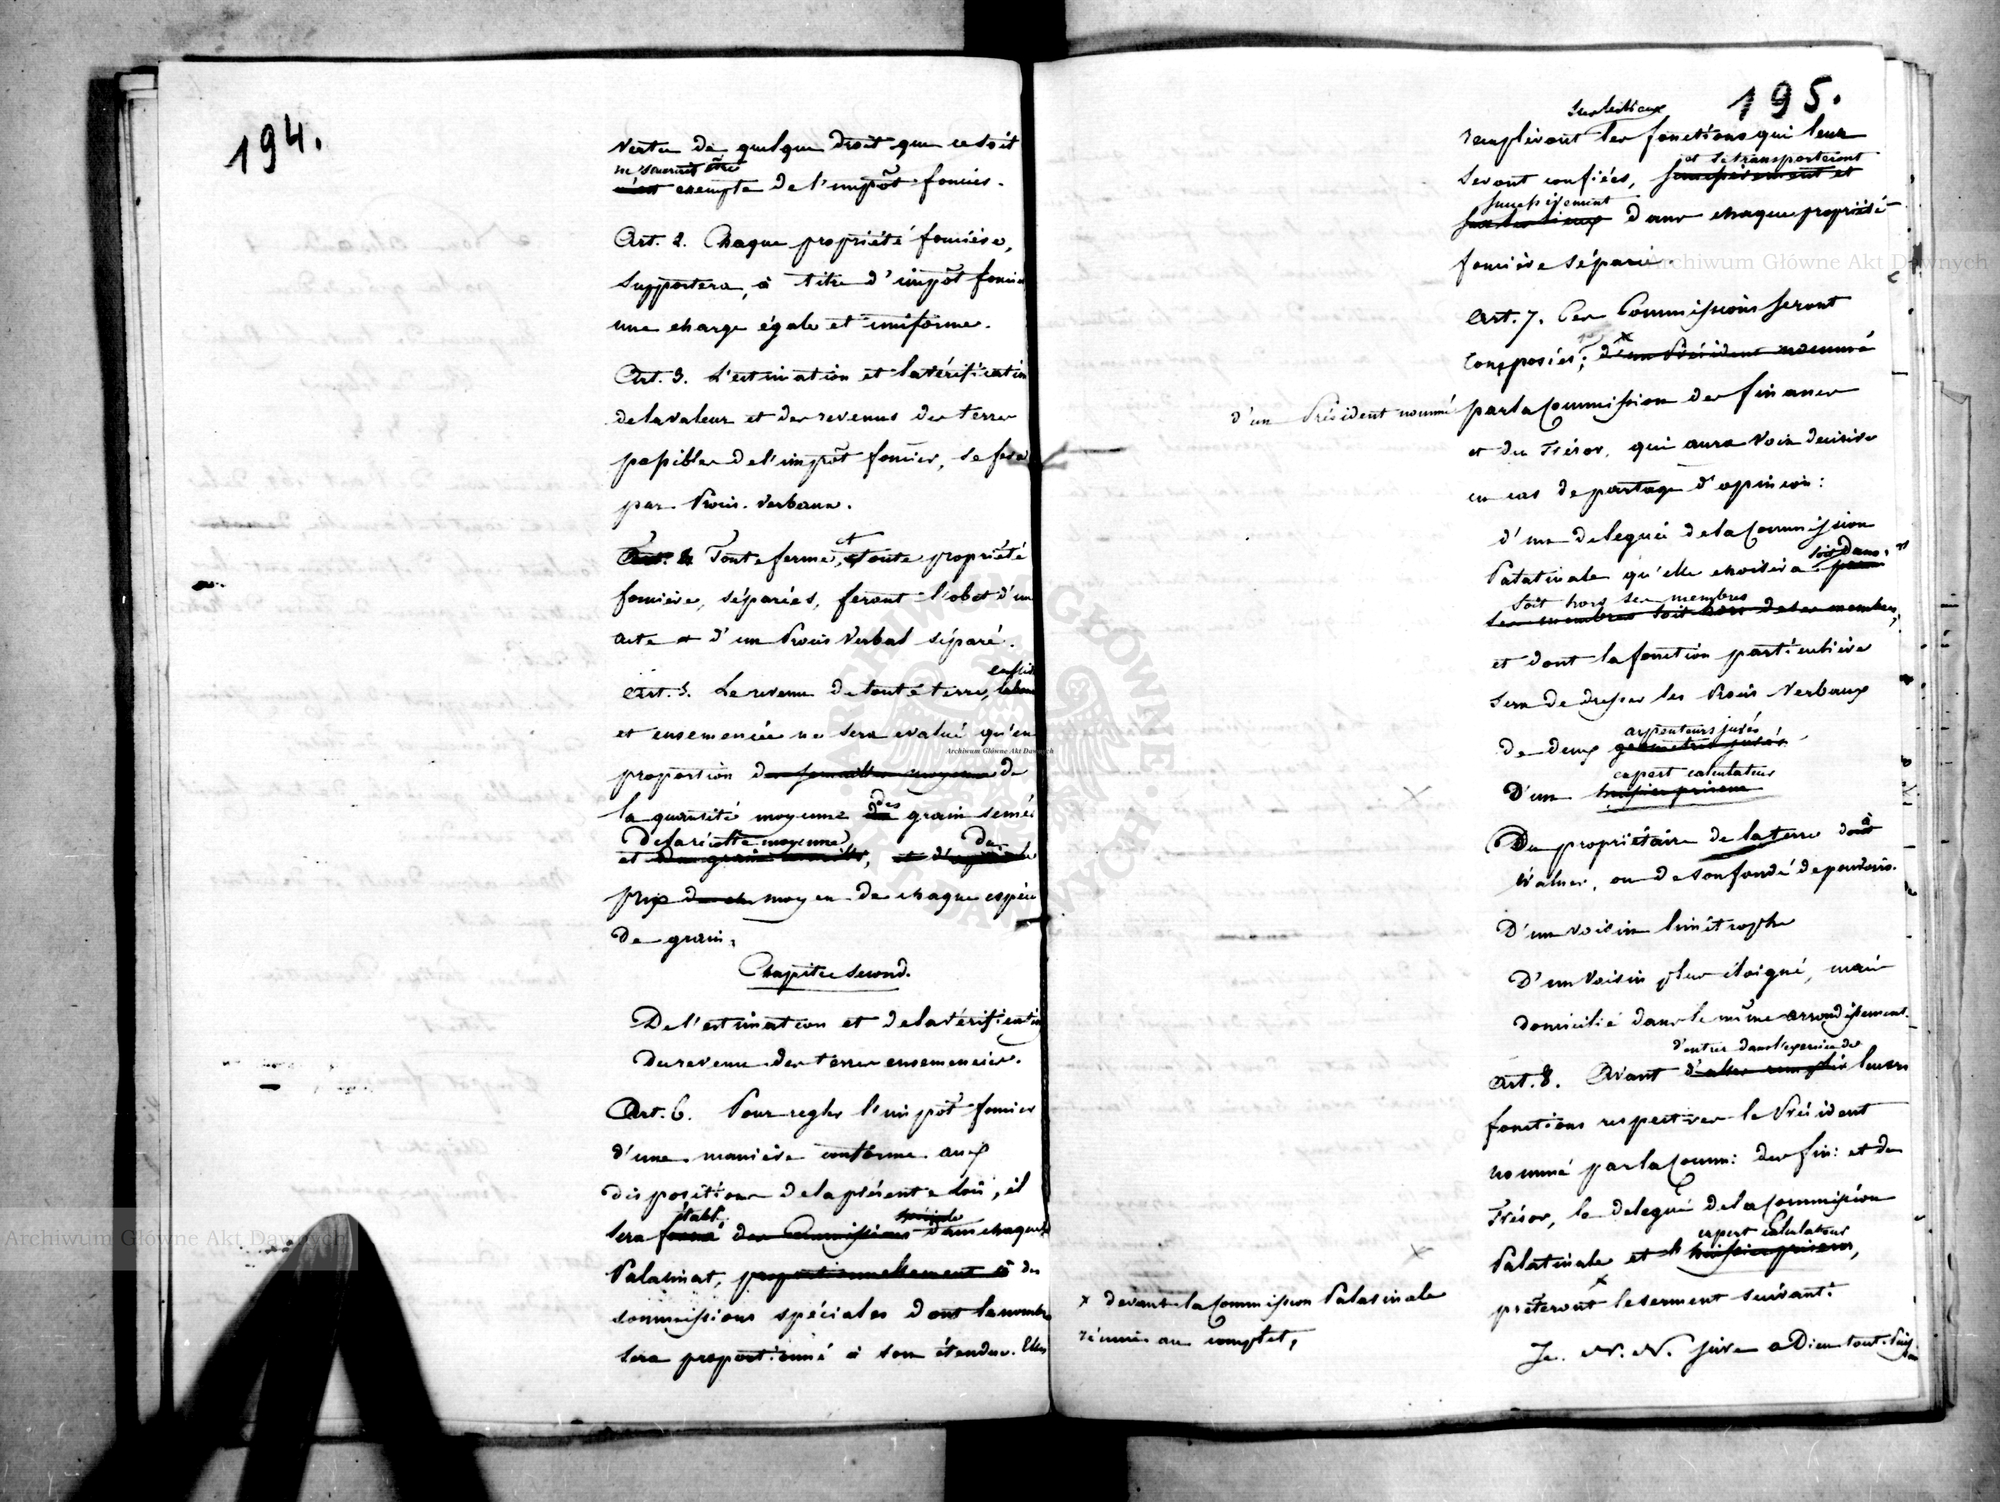 194.
vertu de quelque droit que ce soit
ne sauroit être
n'est exempte de l'impôt foncier.
Art. 2. Chaque propriété foncière,
supportera, à titre d'impôt foncier
une charge égale et uniforme.
Art. 3. L'estimation et la vérification
de la valeur et des revenus des terres
passibles de l'impôt foncier, se fera
par Procès-verbaux.
Art. 4 Toute ferme, et toute propriété
foncière, séparées, feront l'objet d'un
acte et d'un Procès Verbal séparé.
Art. 5. Le revenu de toute terre,
et ensemencée ne sera evalué qu'en
proportion des semailles moyennes de
la quantité moyenne des grains semés
de la récolte moyenne des
et
prix moyen de chaque espèce
de grain.
Chapitre second.
De l'estimation et de la vérification
du revenu des terres ensemencées.
Art. 6. Pour regler l'impôt foncier
d'une manière conforme aux
dispositions de la présente Loi, il
établi
sera formé des Commissions dans chaque
Palatinat, proportionnellement à des
commissions spéciales dont le nombre
sera proportionné à son étendue. Elles
195.
sur les lieux
rempliront les fonctions qui leur
et se transporteront
seront confiées, successivement et
successivement
sur les lieux dans chaque propriété
foncière séparée.
Art. 7. Ces Commissions seront
composées; d'un Président nommé
d'un Président nommé par la Commission des finances
et du Trésor, qui aura voix decisive
en cas de partage d'opinion:
d'un delegué de la Commission
soit dans
Palatinale qu'elle choisira parmi
soit hors ses membres
ses membres soit hors de ses membres,
et dont la fonction particulière
sera de dresser les Procès Verbaux
arpenteurs jurés
de deux géomètres jurés
expert calculateur
D'un huissier priseur
Du propriétaire de la terre à
évaluer, ou de son fondé de pouvoirs.
D'un voisin limitrophe
D'un voisin plus éloigné, mais
domicilié dans le même arrondissement.
d'entrer dans l'exercice de
Art. 8. Avant d'aller remplir leurs
fonctions respectives le Président
nommé par la Comm: des fin: et du
Trésor, le delegué de la Commission
expert Calculateur
Palatinale et l'huissier priseur,
x
prêteront le serment suivant:
x devant la Commission Palatinale
réunie au complet,
Je. N. N. jure à Dieu tout-puissant